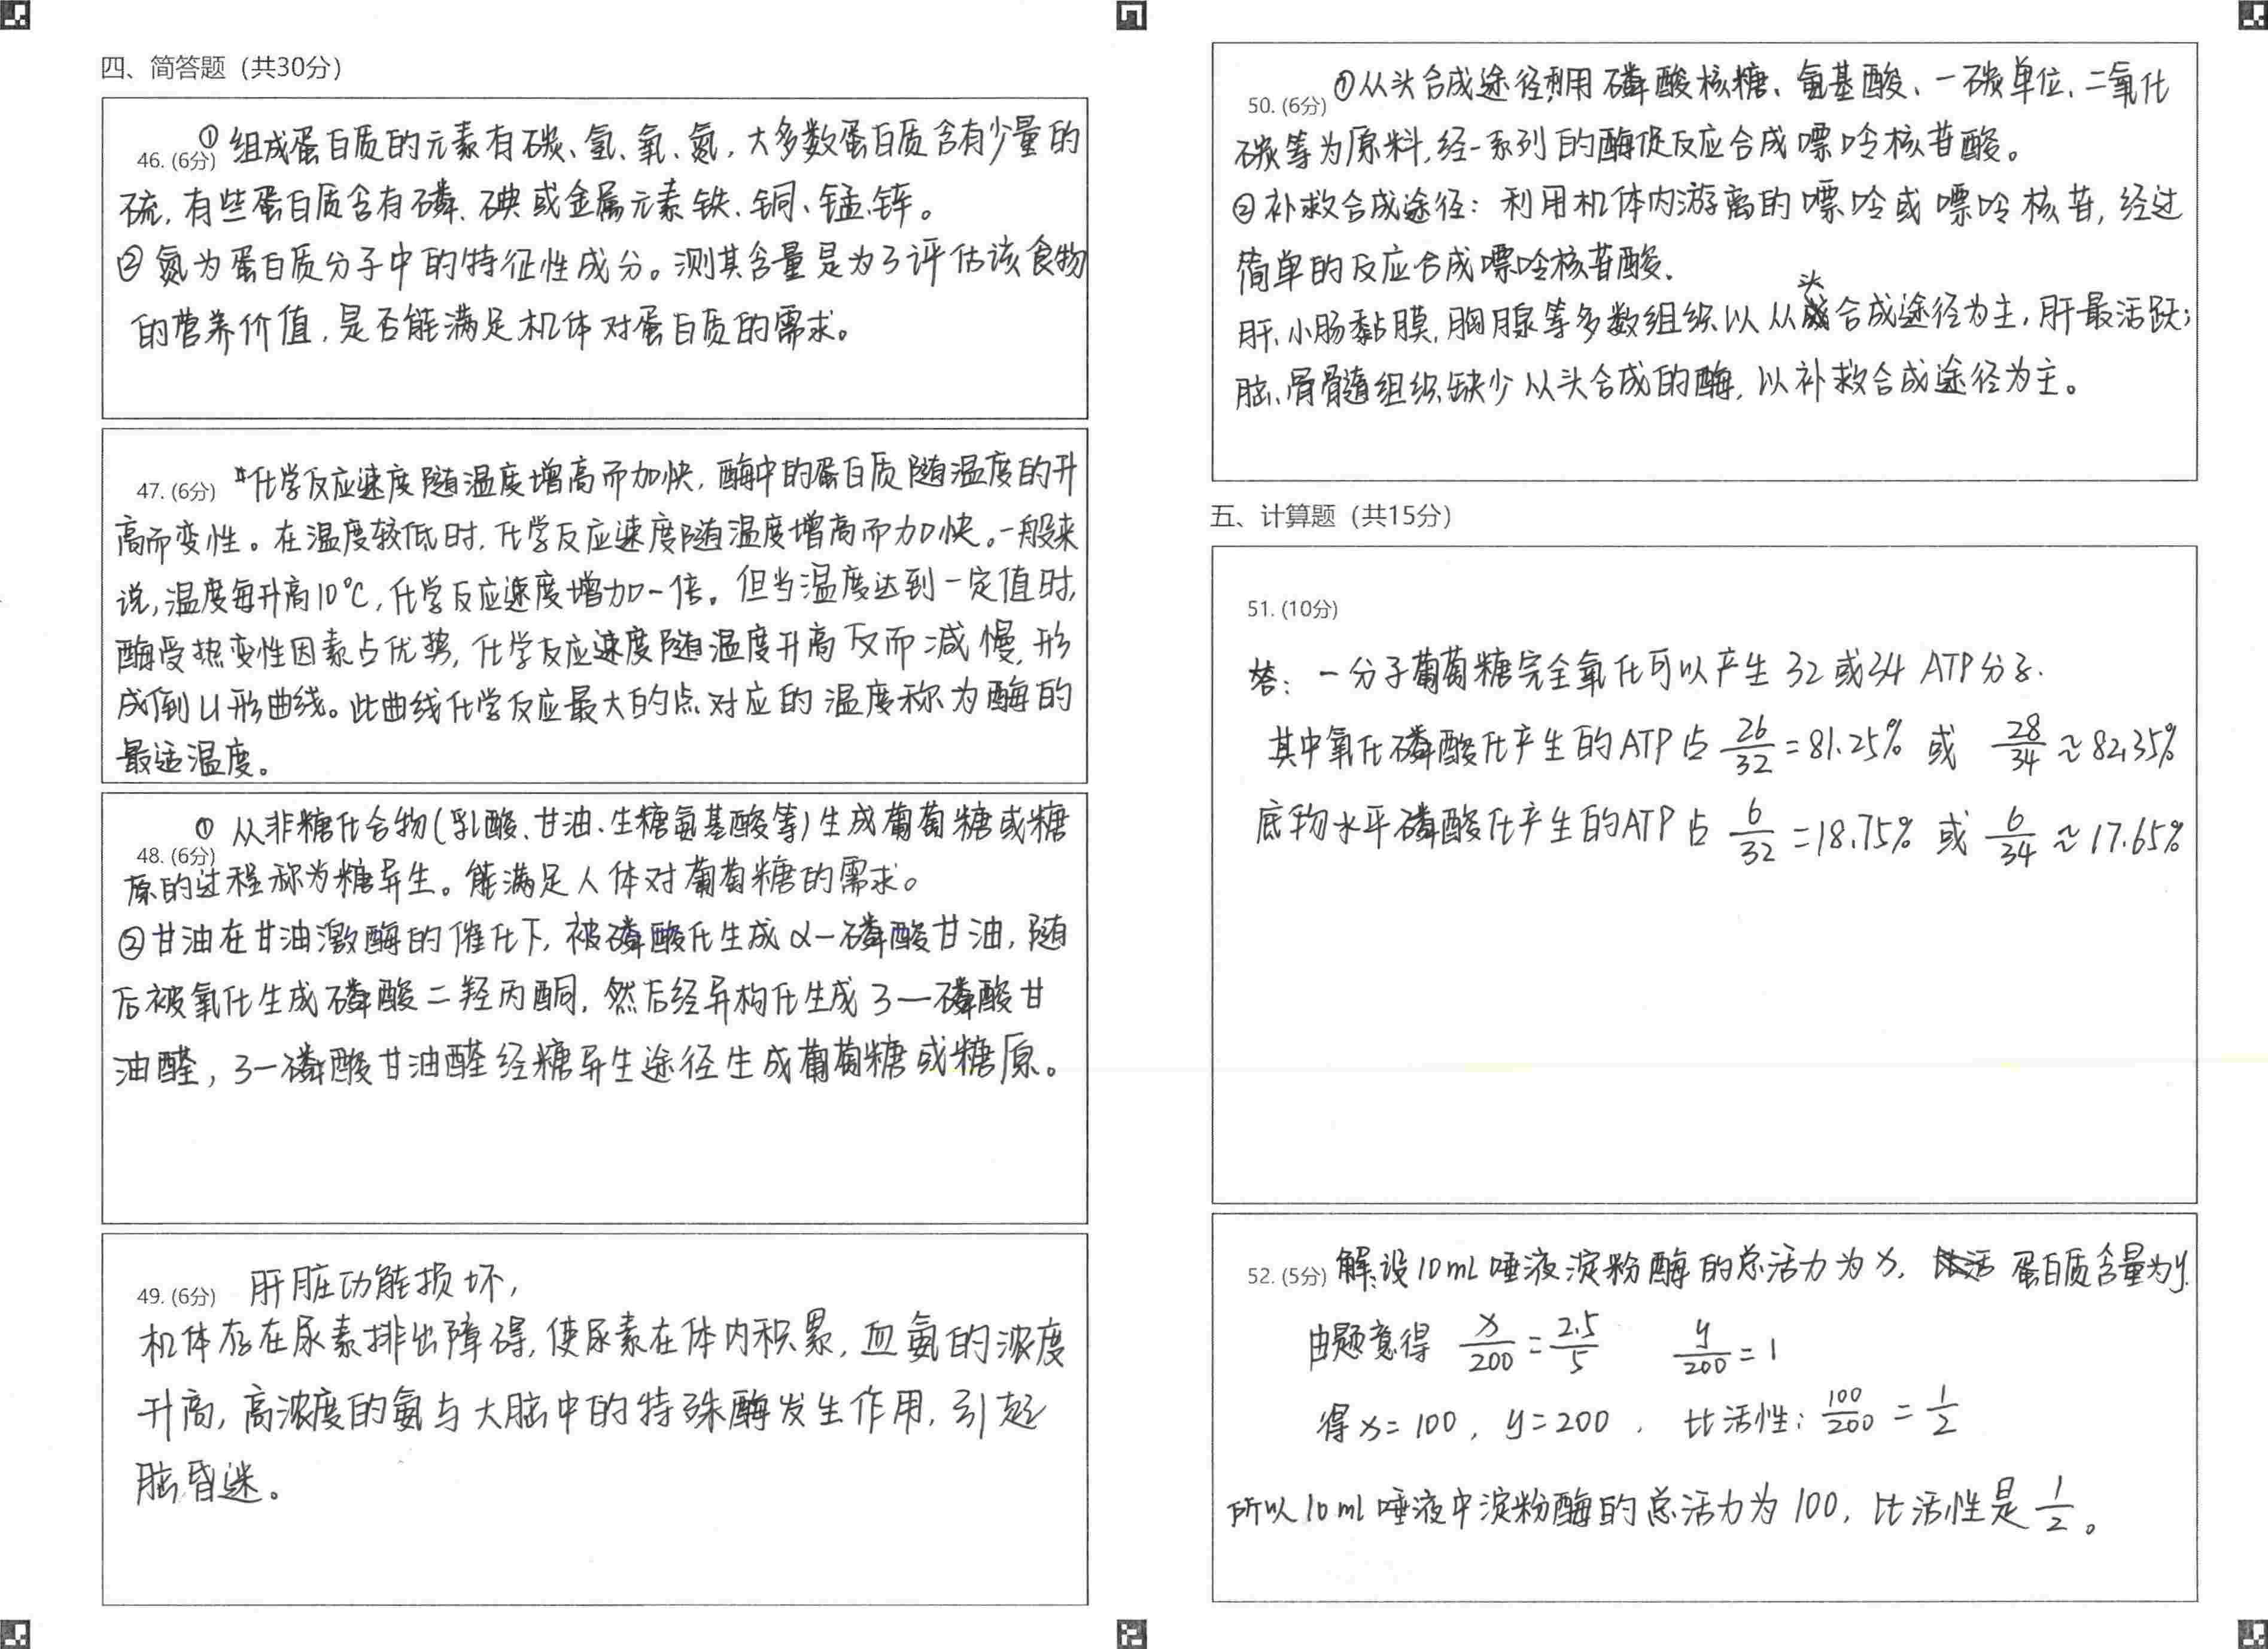 四、简答题（共30分）
46. (6分) ①组成蛋白质的元素有碳、氢、氧、氮，大多数蛋白质含有少量的
硫，有些蛋白质含有磷、碘或金属元素铁、铜、锰、锌。
②氮为蛋白质分子中的特征性成分。测其含量是为了评估该食物
的营养价值，是否能满足机体对蛋白质的需求。
47. (6分) 化学反应速度随温度增高而加快，酶中的蛋白质随温度的升
高而变性。在温度较低时，化学反应速度随温度增高而加快。一般来
说，温度每升高10℃，化学反应速度增加一倍。但当温度达到一定值时，
酶受热变性因素占优势，化学反应速度随温度升高反而减慢，形
成倒U形曲线。此曲线化学反应最大的点对应的温度称为酶的
最适温度。
48. (6分) ①从非糖化合物(乳酸、甘油、生糖氨基酸等)生成葡萄糖或糖
原的过程称为糖异生。能满足人体对葡萄糖的需求。
②甘油在甘油激酶的催化下，被磷酸化生成α—磷酸甘油，随
后被氧化生成磷酸二羟丙酮，然后经异构化生成3—磷酸甘
油醛，3—磷酸甘油醛经糖异生途径生成葡萄糖或糖原。
49. (6分) 肝脏功能损坏，
机体存在尿素排出障碍，使尿素在体内积累，血氨的浓度
升高，高浓度的氨与大脑中的特殊酶发生作用，引起
脑昏迷。
50. (6分) ①从头合成途径利用磷酸核糖、氨基酸、一碳单位、二氧化
碳等为原料，经一系列的酶促反应合成嘌呤核苷酸。
②补救合成途径：利用机体内游离的嘌呤或嘌呤核苷，经过
简单的反应合成嘌呤核苷酸．
肝、小肠黏膜，胸腺等多数组织以从头合成途径为主，肝最活跃；
脑、骨髓组织缺少从头合成的酶，以补救合成途径为主。
五、计算题（共15分）
51. (10分)
答：一分子葡萄糖完全氧化可以产生32或34 ATP分子．
其中氧化磷酸化产生的ATP占 26/32 =81.25% 或 28/34 ≈82.35%
底物水平磷酸化产生的ATP占 6/32 =18.75% 或 6/34 ≈17.65%
52. (5分) 解：设10ml唾液淀粉酶的总活力为x，蛋白质含量为y.
由题意得 x/200 = 2.5/5 y/200 = 1
得x=100，y=200，比活性：100/200 = 1/2
所以10ml唾液中淀粉酶的总活力为100，比活性是 1/2。